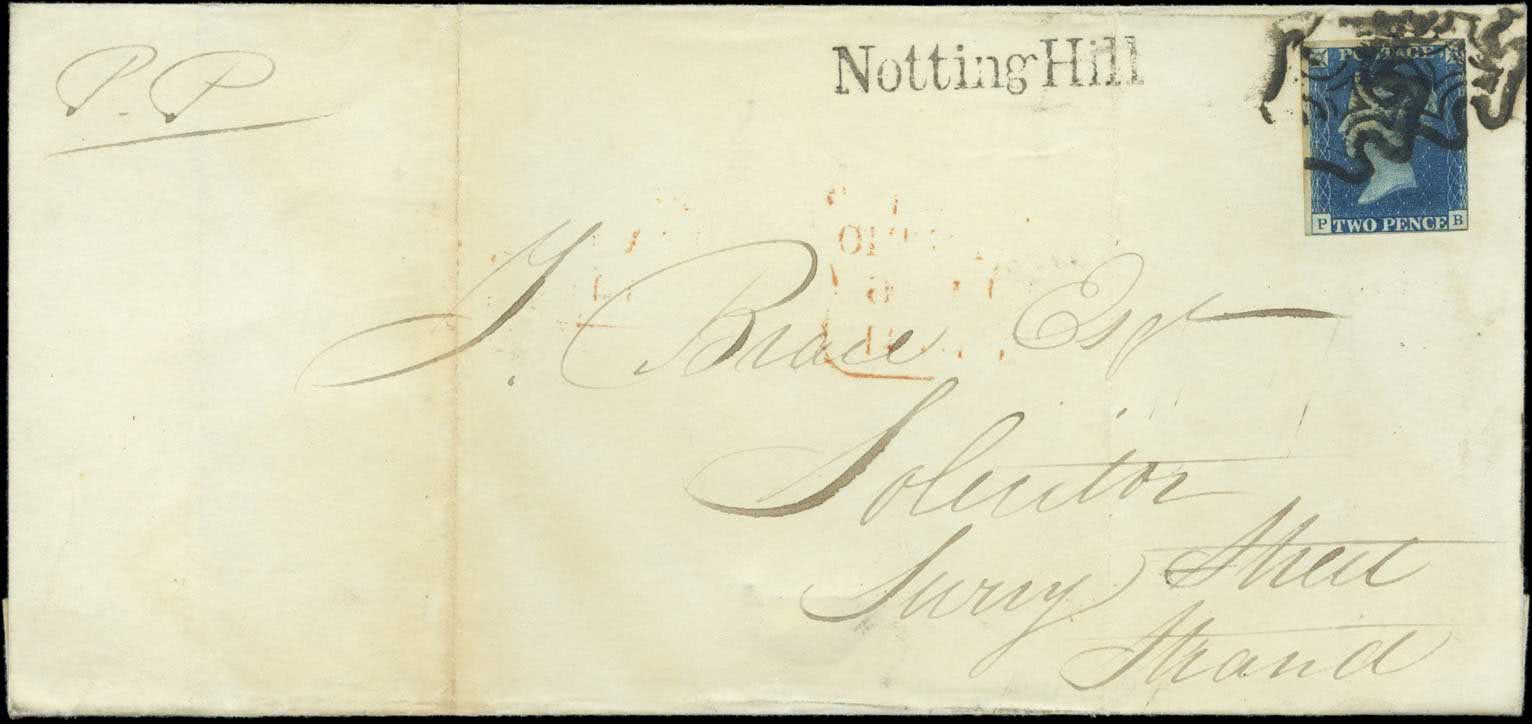 P. P
Notting Hill
POSTAGE
P TWO PENCE B
J. Brace Esqr
Solicitor
Surry Street
Strand